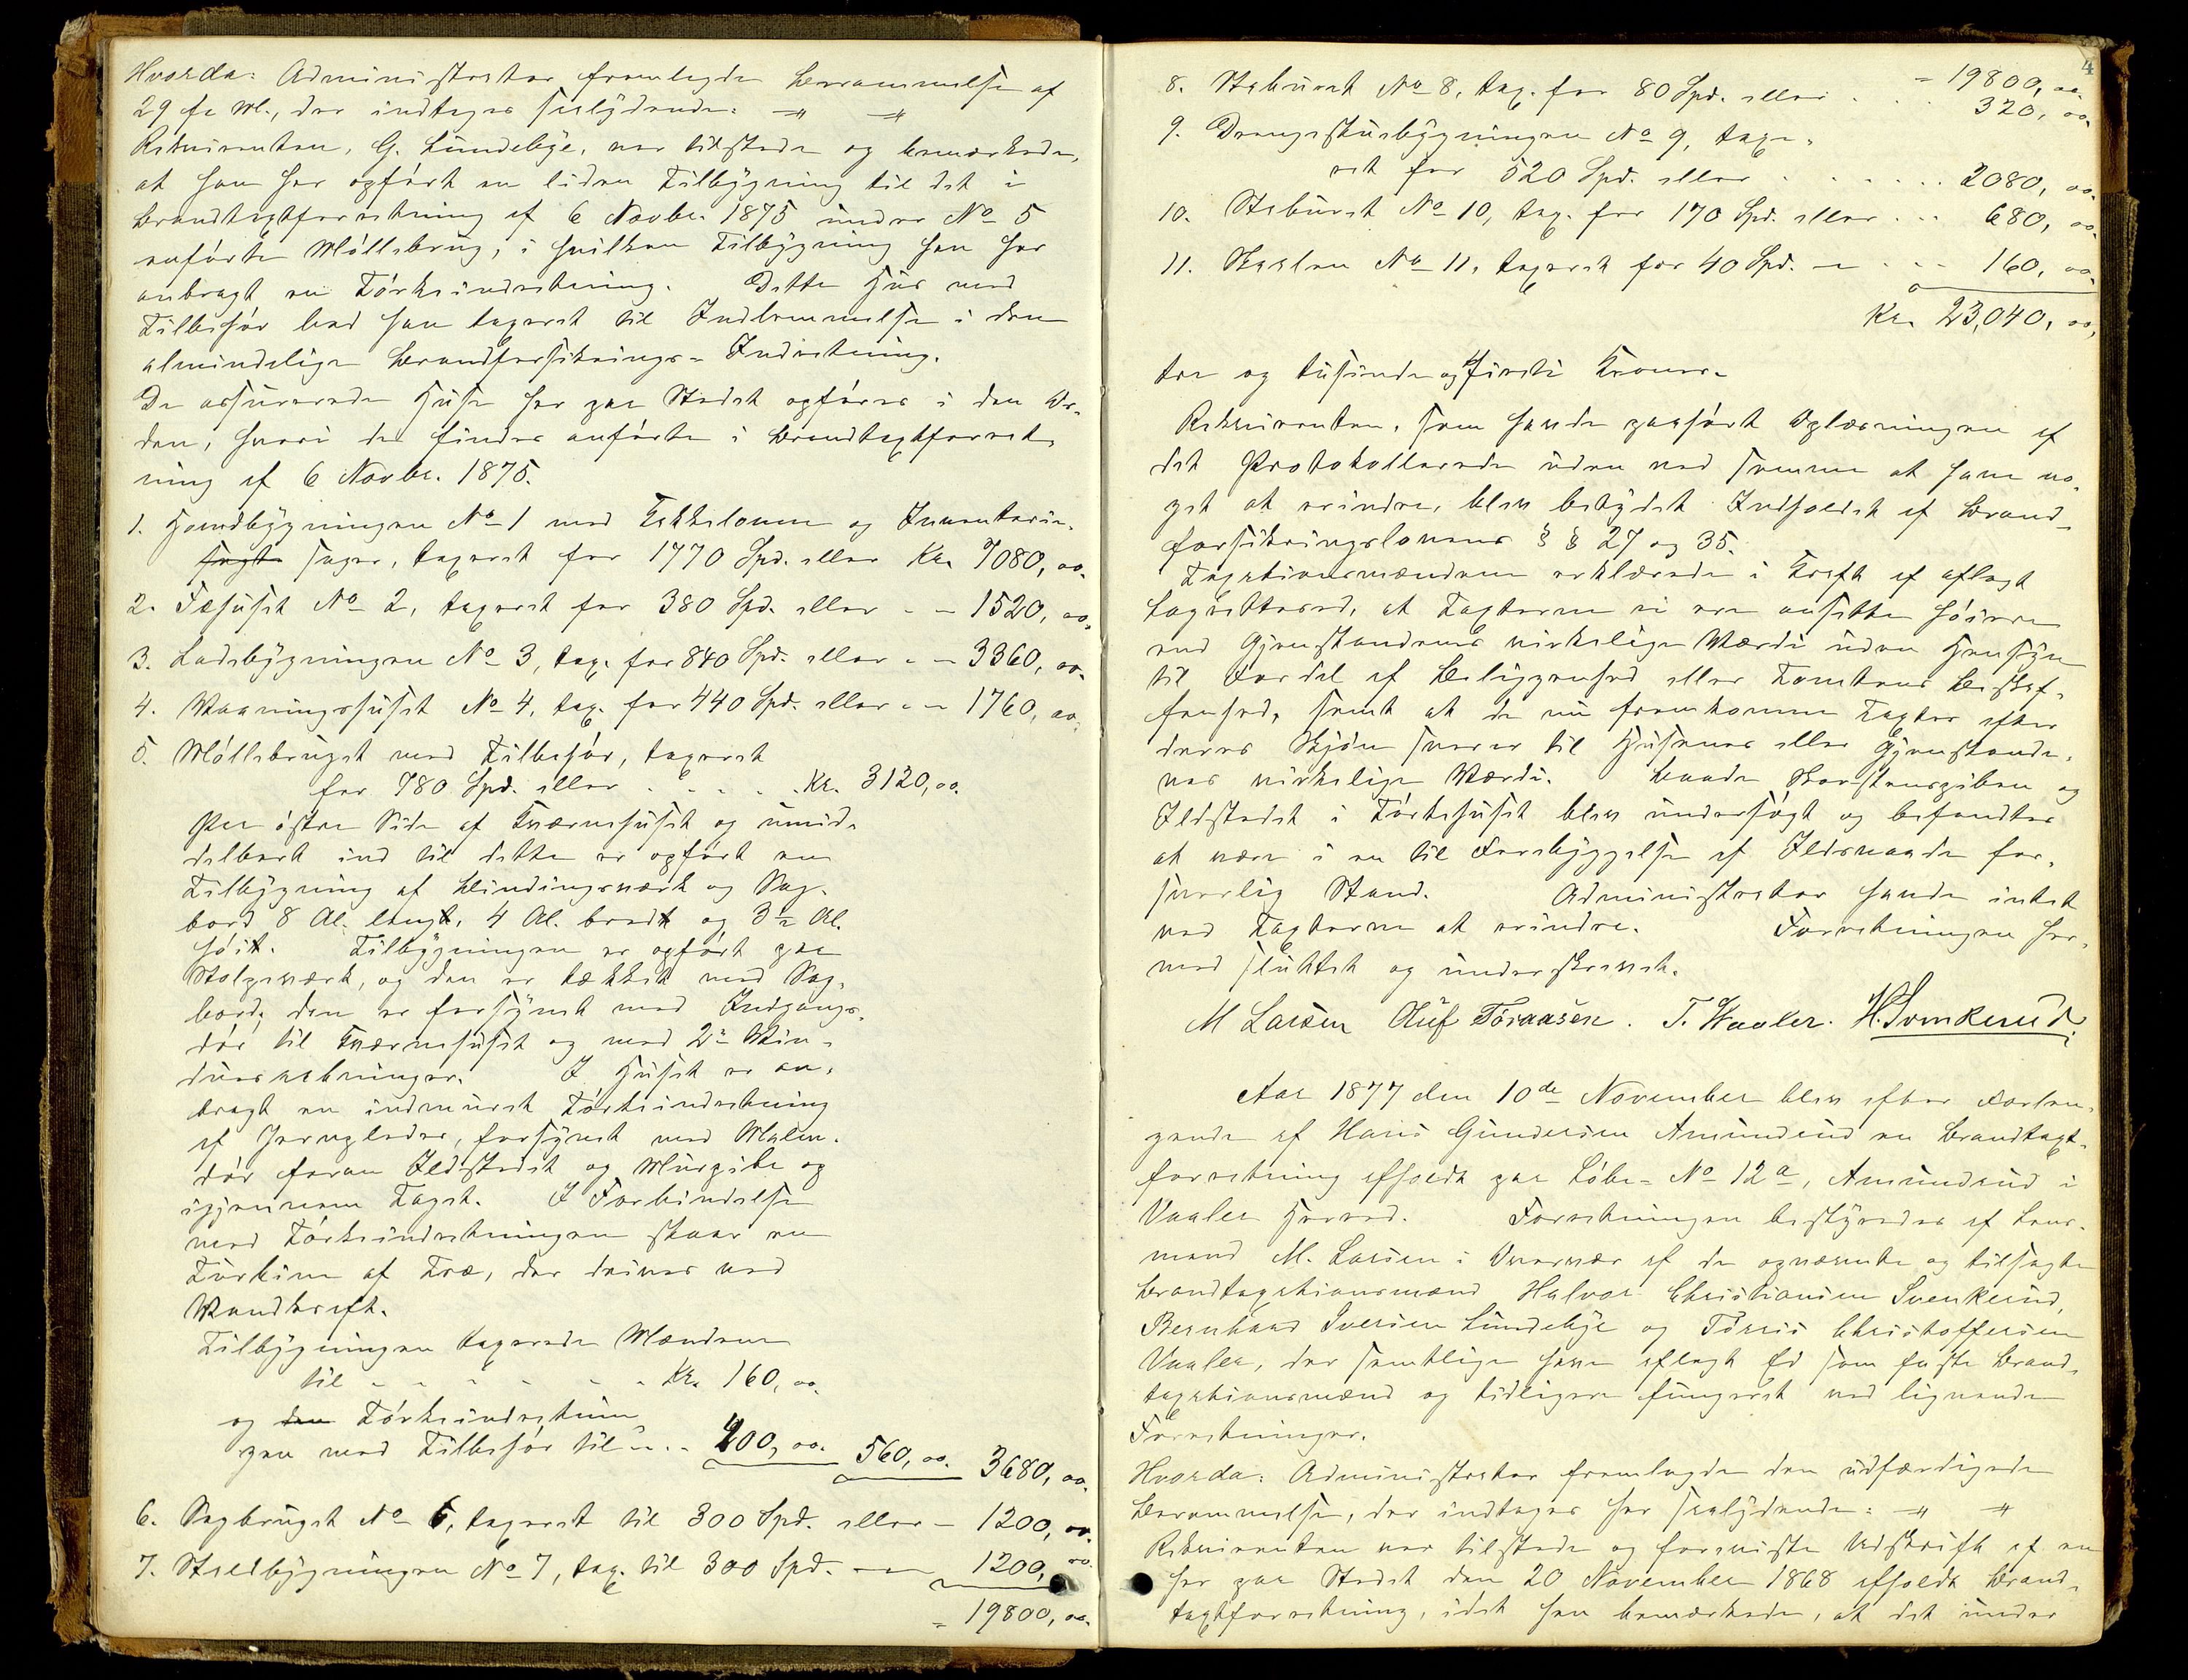 Hvorda: Administrator fremlagde Berammelse af
29 f. M., der indtages saalydende: –〃– –〃–
Rekvirenten, G. Lundebye, var tilstede og bemærkede,
at han har opført en liden Tilbygning til det i
Brandtaxtforretning af 6 Novbr. 1875 under No 5
anførte Møllebrug, i hvilken Tilbygning han har
anbragt en Tørkeindretning. Dette Hus med
Tilbehør bad han taxeret til Indlemmelse i den
almindelige Brandforsikrings-Indretning.
De assurerede Huse her paa Stedet opføres i den Or-
den, hvori de findes anførte i Brandtaxtforret-
ning af 6 Novbr. 1875.
1. Hovedbygningen No 1 med Kakkelovne og Inventarie-
sager, taxeret for 1770 Spd. eller Kr. 7080, 00.
2. Fæhuset No 2, taxeret for 380 Spd. eller - - 1520, 00.
3. Ladebygningen No 3, tax. for 840 Spd. eller - - 3360, 00.
4. Vaaningshuset No 4, tax. for 440 Spd. eller - - 1760, 00.
5. Møllebruget med Tilbehør, taxeret
for 780 Spd. eller . . . . . Kr. 3120, 00.
Paa østre Side af Kværnehuset og umid-
delbart ind til dette er opført en
Tilbygning af Bindingsværk og Sag-
bord 8 Al. langt, 4 Al. bredt og 3½ Al.
høit. Tilbygningen er opført paa
Stolpeværk, og den er tækket med Sag-
bord; den er forsynet med Indgangs-
dør til Kværnehuset og med 2de Vin-
duesaabninger. I Huset er an-
bragt en indmuret Tørkeindretning
af Jernplader, forsynet med Malm-
dør foran Ildstedet og Murpibe op
igjennem Taget. I Forbindelse
med Tørkeindretningen staar en
Turbine af Træ, der drives ved
Vandkraft.
Tilbygningen taxerede Mændene
til - - - - - - - Kr. 160, 00.
og den Tørkeindretnin-
gen med Tilbehør til - - - 400, 00. 560, 00. 3680, 00.
6. Sagbruget No 6, taxeret til 300 Spd. eller - 1200, 00.
7. Staldbygningen No 7, tax. til 300 Spd. — 1200, 00
= 19800, 00.
4
= 19800, 00.
8. Stabburet No 8, tax. for 80 Spd. eller . . . 320, 00.
9. Drengestuebygningen No 9, taxe-
ret for 520 Spd. eller . . . . . . 2080, 00.
10. Stabburet No 10, tax. for 170 Spd. eller . . . 680, 00.
11. Skaalen No 11, taxeret for 40 Spd. — . . . 160, 00.
Kr. 23,040, 00.
tre og tusinde og firti Kroner.
Rekvirenten, som havde paahørt Oplæsningen af
det Protokollerede uden ved samme at have no-
get at erindre, blev betydet Indholdet af Brand-
forsikringslovens § § 27 og 35.
Taxationsmændene erklærede i Kraft af aflagt
Lagretteed, at Taxterne ei ere ansatte høiere
end Gjenstandenes virkelige Værdi uden Hensyn
til Fordel af Beliggenhed eller Tomtens Beskaf-
fenhed, samt at de nu fremkomne Taxter efter
deres Skjøn svarer til Husenes eller Gjenstande-
nes virkelige Værdi. Baade Skorstenspiben og
Ildstedet i Tørkehuset blev undersøgt og befandtes
at være i en til Forebyggelse af Ildsvaade for-
svarlig Stand. Administrator havde intet
ved Taxterne at erindre. Forretningen her-
med sluttet og underskrevet.
M Larsen Oluf Toraasen. T. Waaler. H. Svenkerud.
Aar 1877 den 10de November blev efter Forlan-
gende af Hans Gundersen Amundrud en Brandtaxt-
forretning afholdt paa Løbe-No 12a, Amundrud i
Vaaler Herred. Forretningen bestyredes af Lens-
mand M. Larsen i Overvær af de opnævnte og tilsagte
Brandtaxationsmænd Halvor Christiansen Svenkerud,
Bernhard Iversen Lundebye og Tørris Christoffersen
Vaaler, der samtlige have aflagt Ed som faste Brand-
taxationsmænd og tidligere fungeret ved lignende
Forretninger.
Hvorda: Administrator fremlagde den udfærdigede
Berammelse, der indtages her saalydende: –〃– –〃–
Rekvirenten var tilstede og foreviste Udskrift af en
her paa Stedet den 20 November 1868 afholdt Brand-
taxtforretning, idet han bemærkede, at det under